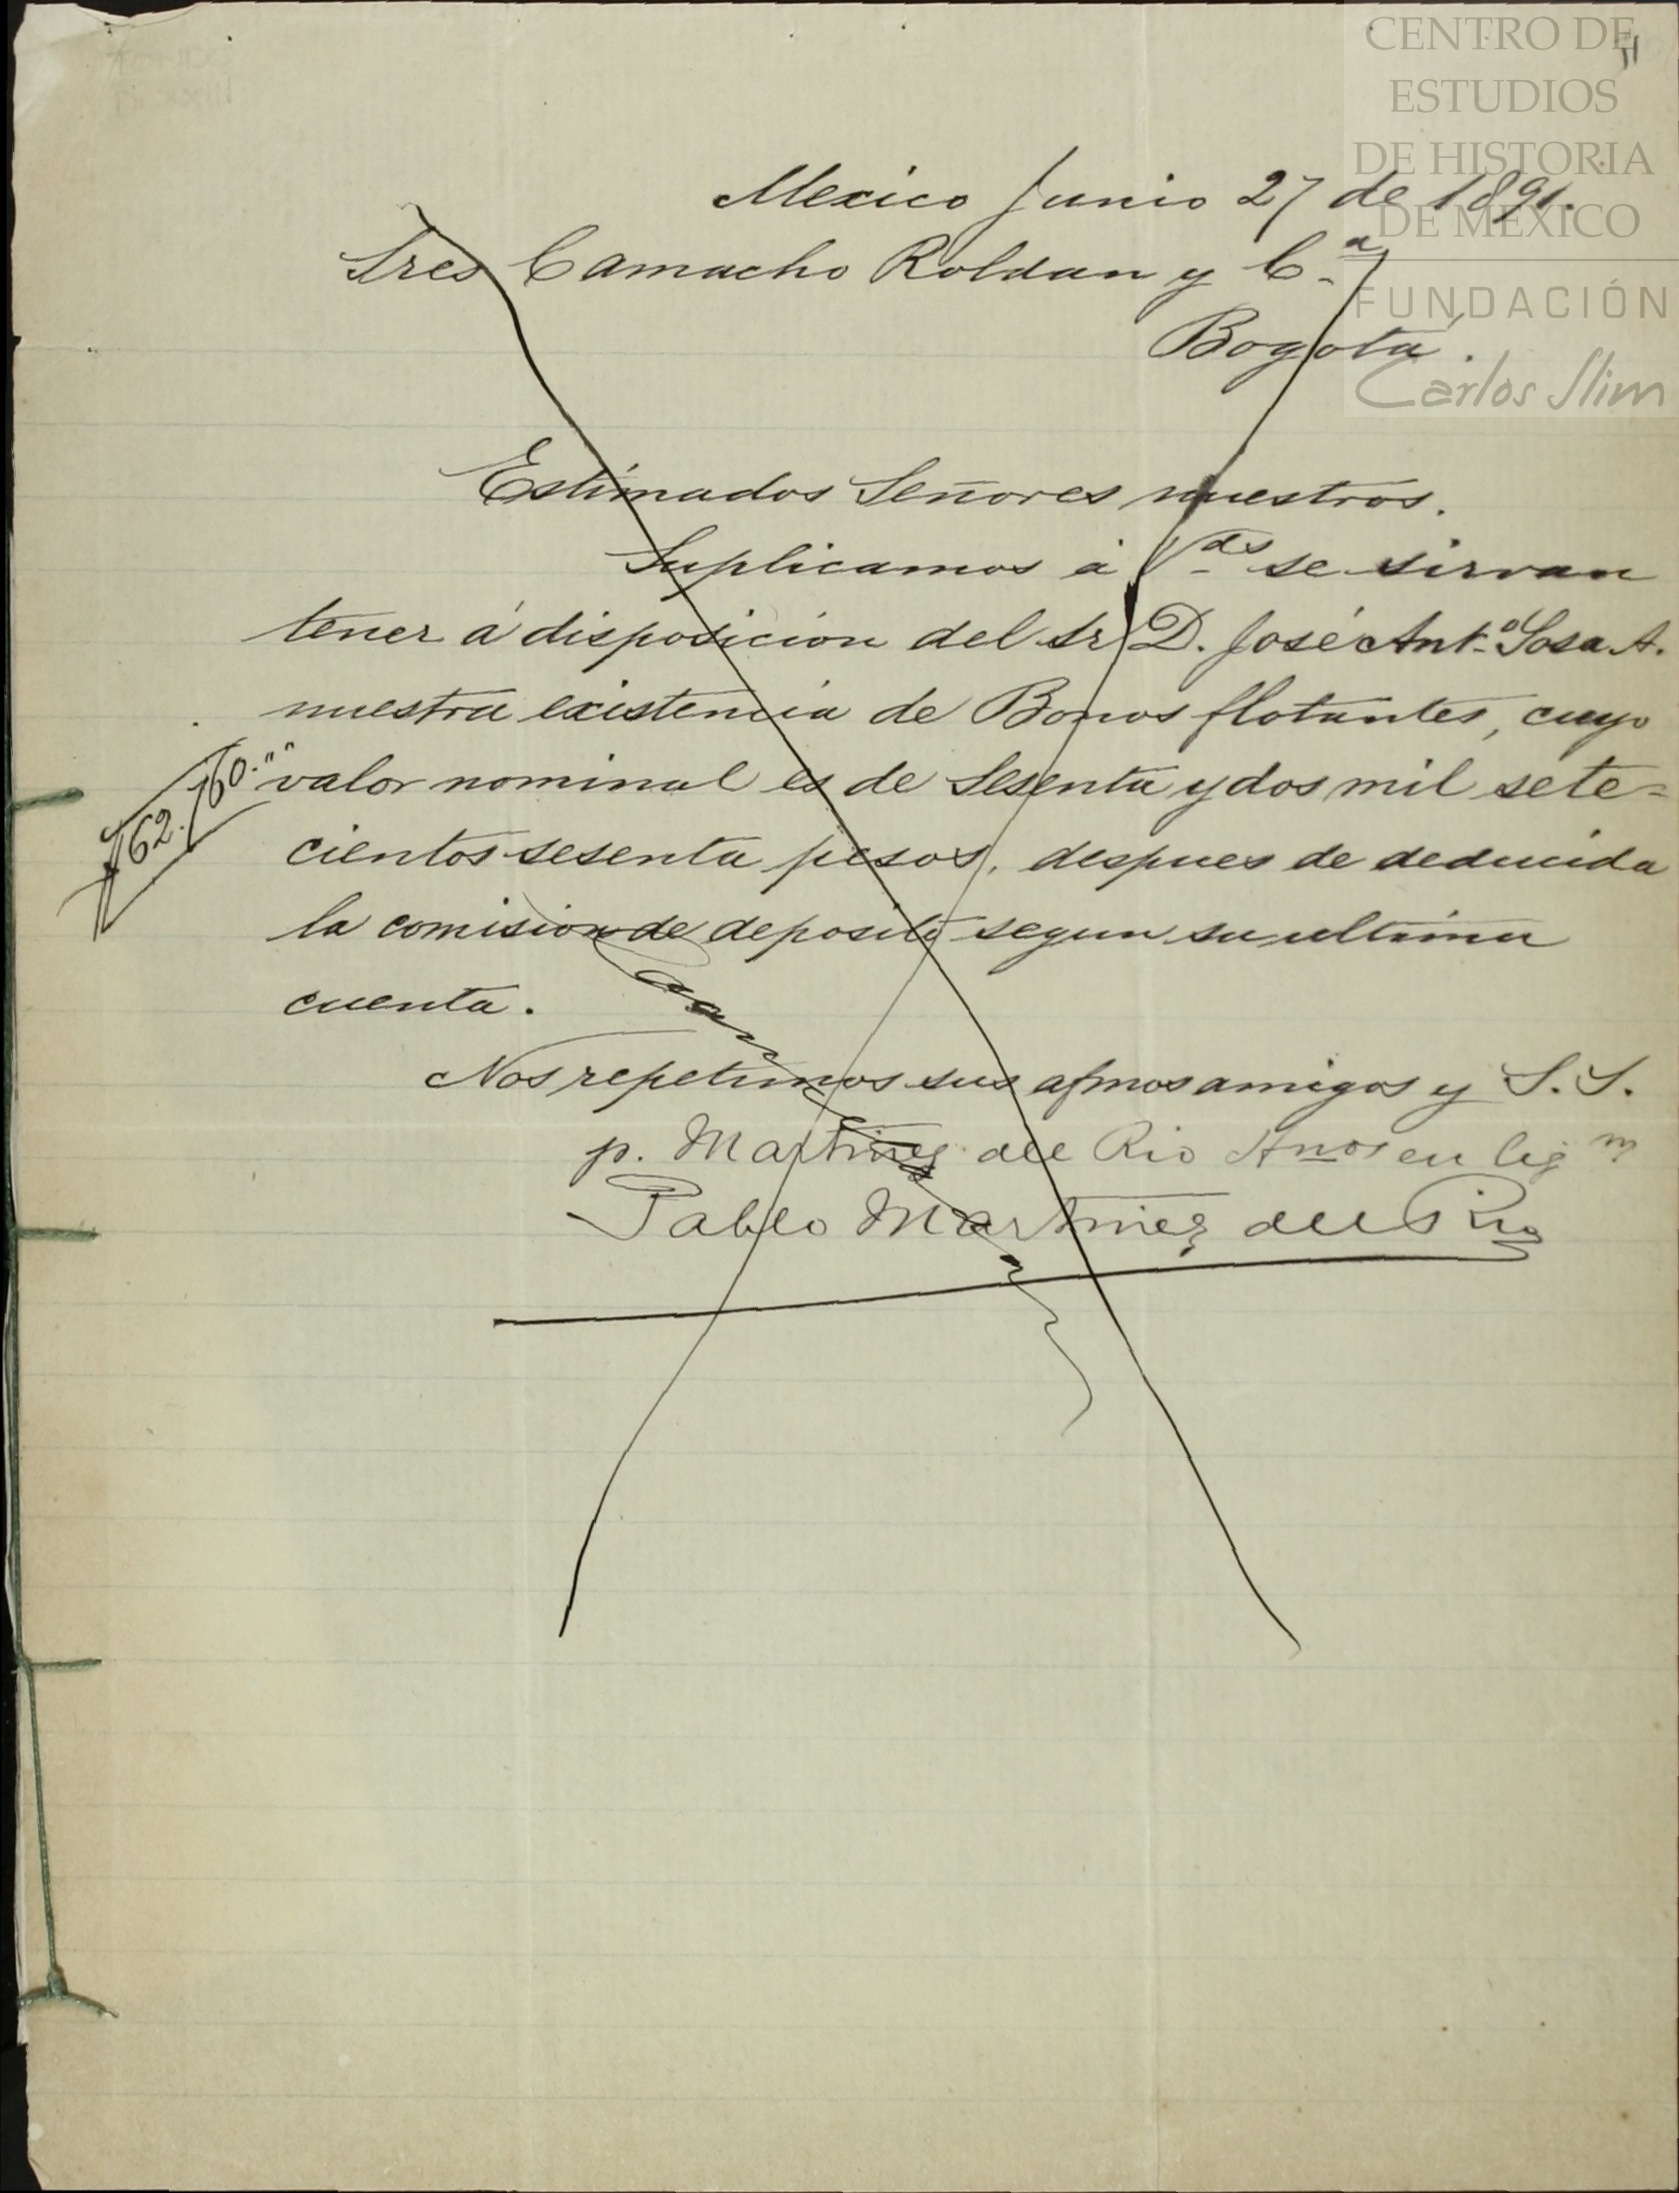 CENTRO DE
ESTUDIOS
DE HISTORIA
DE MÉXICO
FUNDACIÓN
Carlos Slim
11
Mexico Junio 27 de 1891.
Sres Camacho Roldan y Cª
Bogotá.
Estimados Señores nuestros.
Suplicamos á Vds se sirvan
tener á disposicion del Sr D. José Antº Sosa A.
nuestra existencia de Bonos flotantes, cuyo
valor nominal es de Sesenta y dos mil sete=
cientos sesenta pesos, despues de deducida
la comision de deposito segun su ultima
cuenta.
$62.760."
Nos repetimos sus afmos amigos y S. S.
p. Martinez del Rio Hnos en liqn
Pablo Martinez del Rio